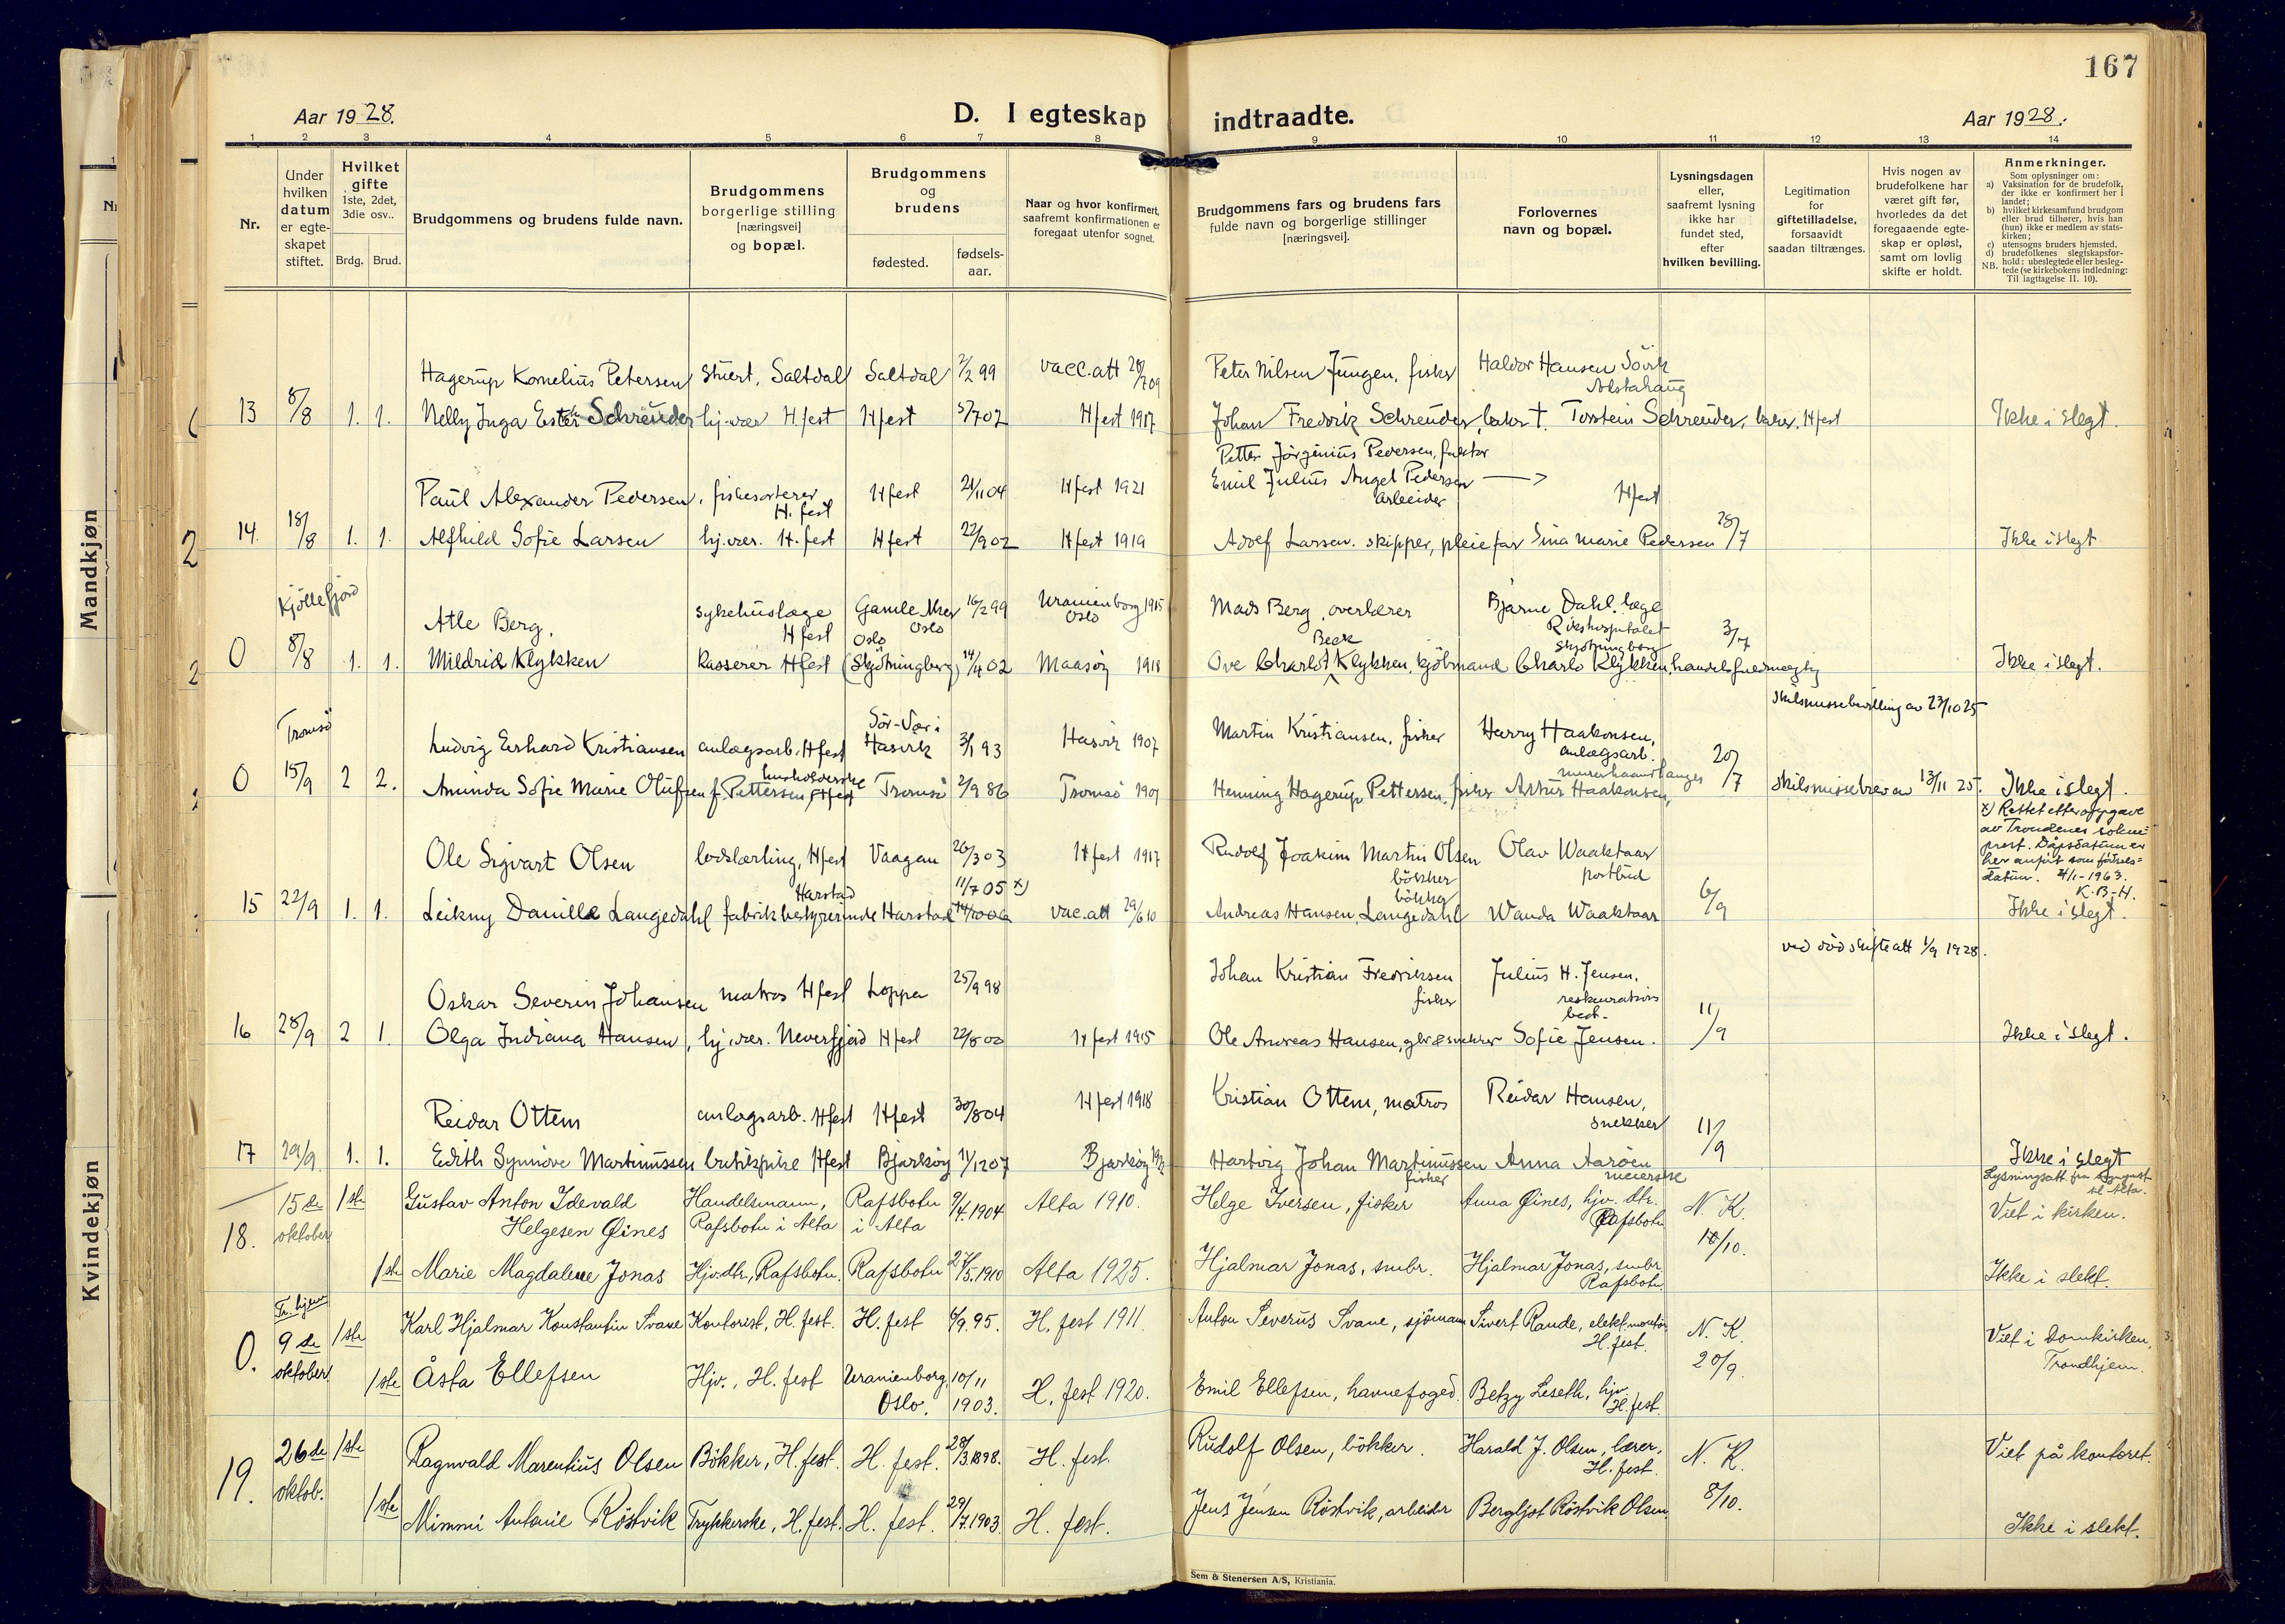 167
Aar 1928.
D. I egteskap indtraadte.
Aar 1928.
1 2 3 4 5 6 7 8 9 10 11 12 13 14
Nr.
Under hvilken datum er egteskapet stiftet.
Hvilket gifte 1ste, 2det, 3die osv..
Brdg. Brud.
Brudgommens og brudens fulde navn.
Brudgommens borgerlige stilling [næringsvei] og bopæl.
Brudgommens og brudens
fødested.
fødsels-aar.
Naar og hvor konfirmert, saafremt konfirmationen er foregaat utenfor sognet.
Brudgommens fars og brudens fars fulde navn og borgerlige stillinger [næringsvei].
Forlovernes navn og bopæl.
Lysningsdagen eller, saafremt lysning ikke har fundet sted, efter hvilken bevilling.
Legitimation for giftetilladelse, forsaavidt saadan tiltrænges.
Hvis nogen av brudefolkene har været gift før, hvorledes da det foregaaende egteskap er opløst, samt om lovlig skifte er holdt.
Anmerkninger.
Som oplysninger om:
a) Vaksination for de brudefolk, der ikke er konfirmert her i landet;
b) hvilket kirkesamfund brudgom eller brud tilhører, hvis han (hun) ikke er medlem av statskirken;
c) utensogns bruders hjemsted.
d) brudefolkenes slegtskapsforhold: ubeslegtede eller beslegtede (se kirkebokens indledning:
NB. Til iagttagelse II. 10).
Hagerup Kornelius Petersen stuert, Saltdal Saltdal 7/2 99 vacc.att 28/7 09 Peter Nilsen Jungen, fisker Haldor Hansen Søvik Alstahaug
13 8/8 1. 1. Nelly Inga Ester Schreuder hj.vær H fest Hfest 5/7 02 Hfest 1917 Johan Fredrik Schreuder, † Torstein Schreuder, lærer, Hfest Ikke i slegt.
Petter Jørginius Pedersen, faktor
Paul Alexander Pedersen, fiskesorterer H. fest Hfest 21/11 04 Hfest 1921 Emil Julius Angel Pedersen arbeider Hfest
14. 18/8 1. 1. Alfhild Sofie Larsen hj.vær. H. fest Hfest 22/9 02 Hfest 1919 Adolf Larsen. skipper, pleiefar Sina Marie Pedersen 28/7 Ikke i slegt
Kjøllefjord
Atle Berg, sykehuslæge H fest Gamle Aker Oslo 16/2 99 Uranienborg 1915 Oslo Mads Berg, overlærer Bjarne Dahl. læge Rikshospitalet
0 8/8 1. 1. Mildrid Klykken kasserer Hfest Oslo (Skjøtningberg) 14/4 02 Maasøy 1918 Ove Charlot Beck Klykken, kjøbmand Charlo Klykken, handelsfuldmægtig Skjøtningberg 3/7 Ikke i slegt.
Skilsmissebevilling av 23/10 25
Tromsø
Ludvig Erhard Kristiansen anlægsarb. Hfest Sør-Vær i Hasvik 3/1 93 Hasvik 1907 Martin Kristiansen, fisker Harry Haakonsen, anlægsarb.
0 15/9 2 2. Aminda Sofie Marie Olufsen f. Pettersen husholderske Hfest Tromsø 2/9 86 Tromsø 1901 Henning Hagerup Pettersen, fisker Artur Haakonsen, murerhaandlanger 20/7 Skilsmissebrev av 13/11 25. Ikke i slegt.
x) Rettet etter oppgave
av Trondenes sokne-
prest. Dåpsdatum er
her anført som fødsels-
datum. 4/1-1963.
K.B-H.
Ole Sigvart Olsen lodslærling, Hfest Vaagan 26/3 03 Hfest 1917 Rudolf Joakim Martin Olsen bøkker Olav Waaktaar postbud
15 22/9 1. 1. Leikny Danilla Langedahl fabrikbestyrerinde Harstad Harstad 11/7 05 x) vac.att 29/6 10 Andreas Hansen Langedahl bøkker Wanda Waaktaar 6/9 Ikke i slegt.
ved død skifteatt 1/9 1928.
Oskar Severin Johansen matros Hfest Loppa 25/9 98 Johan Kristian Fredriksen fisker Julius H. Jensen,
16 28/9 2 1. Olga Indiana Hansen, hj.vær. Neverfjord Hfest 22/8 00 Hfest 1915 Ole Andreas Hansen, Sofie Jensen. 11/9 Ikke i slegt.
Reidar Ottem anlægsarb. Hfest Hfest 30/8 04 Hfest 1918 Kristian Ottem, matros Reidar Hansen, snekker
17 29/9 1. 1. Edith Synnøve Martinussen butikpike Hfest Bjarkøy 11/12 07 Bjarkøy Hartvig Johan Martinussen fisker Anna Aarøen meierske 11/9 Ikke i slegt
Lysningsatt. fra sogneprest til Alta.
18. 15de oktober 1ste Gustav Anton Idevald Helgesen Øines Handelsmann, Rafsbotn i Alta Rafsbotn i Alta 9/4. 1904 Alta 1910. Helge Iversen, fisker Anna Øines, hjv. dtr. Rafsbotn N. K. 10/10. Viet i kirken.
1ste Marie Magdalene Jonas Hjv.dtr, Rafsbotn. Rafsbotn 27/5. 1910 Alta 1925. Hjalmar Jonas, smbr. Hjalmar Jonas, smbr. Rafsbotn Ikke i slekt.
Tr. hjem
0. 9de oktober 1ste Karl Hjalmar Konstantin Svane Kontorist, H. fest. H. fest 6/9. 95. H. fest 1911. Anton Severus Svane, sjømann Sivert Rande, elekt.montør H. fest. N. K. 20/9. Viet i Domkirken, Trondhjem.
1ste Åsta Ellefsen Hjv., H. fest Uranienborg, Oslo. 10/11 1903. H. fest 1920. Emil Ellefsen, havnefoged. Betzy Leseth, hjv. H. fest.
19. 26de oktob. 1ste Ragnvald Marentius Olsen Bøkker, H. fest. H. fest. 28/3. 1898. H. fest. Rudolf Olsen, bøkker. Harald J. Olsen, lærer, H. fest. N. K. 8/10. Viet på kontoret.
1ste Mimmi Antonie Röstvik Trykkerske, H. fest. H. fest. 29/7. 1903. H. fest. Jens Jensen Röstvik, arbeider Bergljot Röstvik Olsen Ikke i slekt.
Sem & Stenersen A/S, Kristiania.
Mandkjøn
Kvindekjøn